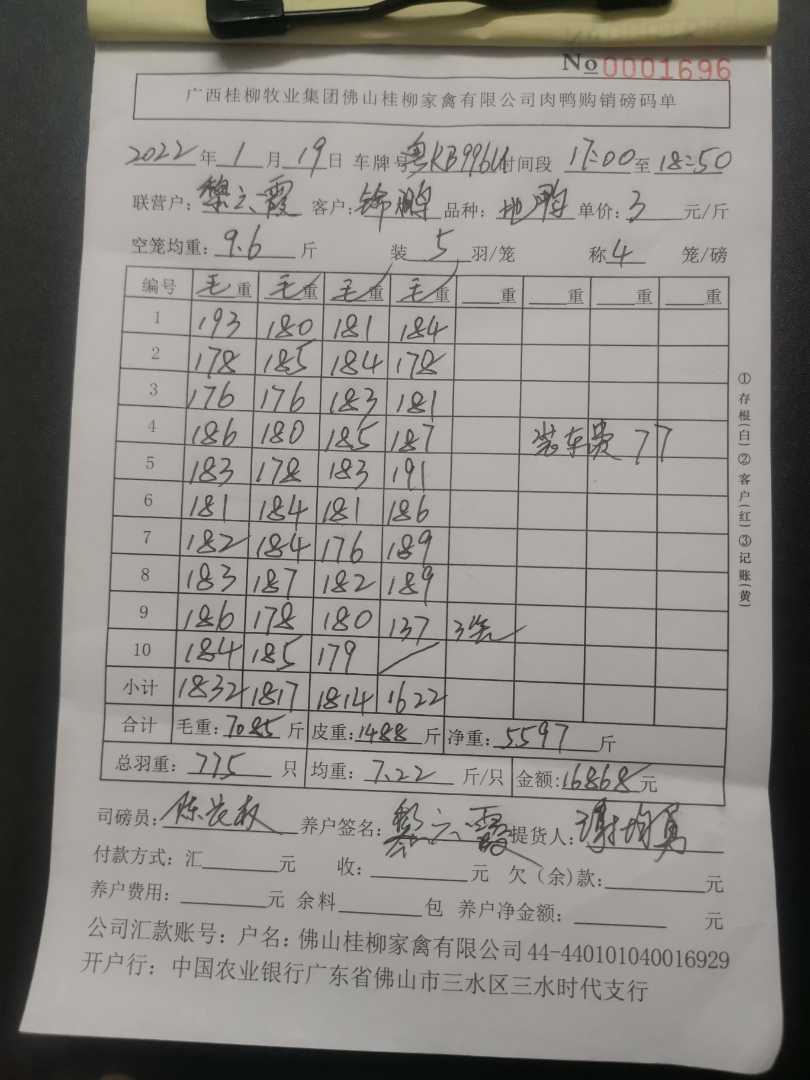 No 0001696
广西桂柳牧业集团佛山桂柳家禽有限公司肉鸭购销磅码单
2022年1月19日 车牌号粤KB996U时间段 17:00至18:50
联营户:黎六霞 客户:锦鹏 品种:地鸭 单价:3 元/斤
空笼均重:9.6斤 装5羽/笼 称4笼/磅
编号 毛重 毛重 毛重 毛重 重 重 重 重
1 193 180 181 184
2 178 185 184 178
3 176 176 183 181
4 186 180 185 187 装车费 77
5 183 178 183 191
6 181 184 181 186
7 182 184 176 189
8 183 187 182 189
9 186 178 180 137 3笼
10 184 185 179 /
小计 1832 1817 1814 1622
合计 毛重:7085斤 皮重:1488斤 净重:5597斤
总羽重:775只 均重:7.22斤/只 金额:16868元
司磅员: 养户签名:黎六霞 提货人:谢均勇
付款方式:汇 元 收: 元 欠(余)款: 元
养户费用: 元 余料 包 养户净金额: 元
公司汇款账号:户名:佛山桂柳家禽有限公司 44-440101040016929
开户行:中国农业银行广东省佛山市三水区三水时代支行
①存根(白)②客户(红)③记账(黄)